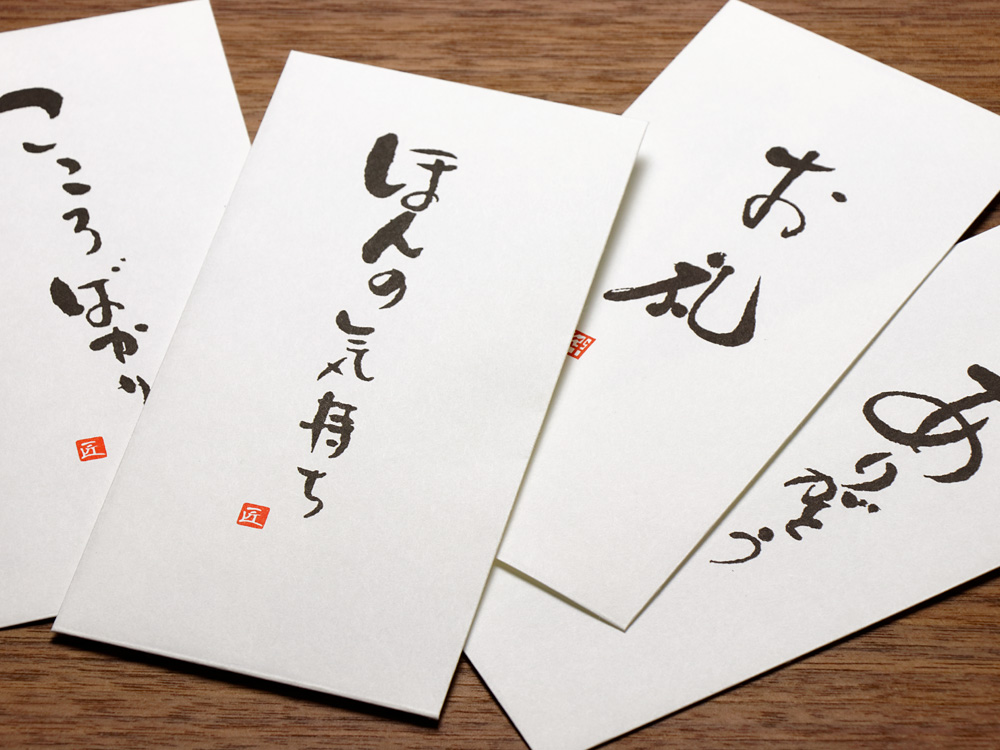 こころばかり
匠
ほんの気持ち
匠
お礼
ありがとう